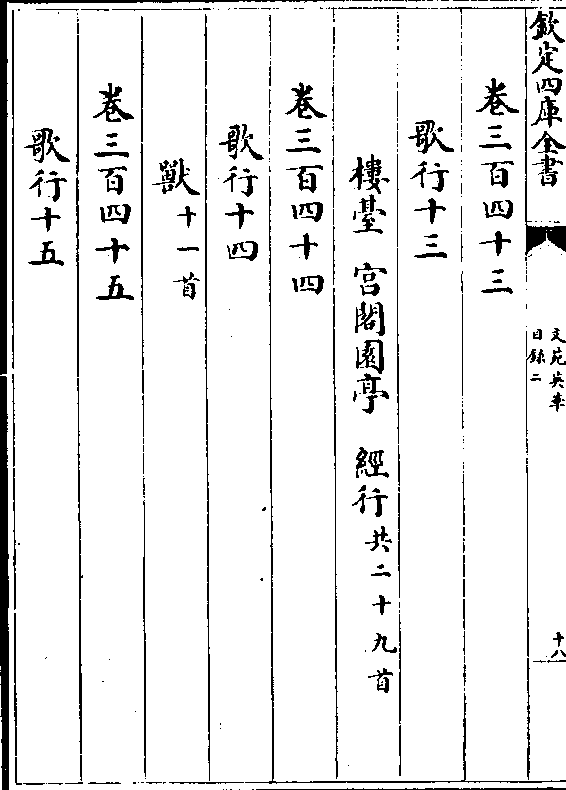 欽定四庫全書
文苑英華
目錄二
十八
卷三百四十三
歌行十三
樓臺 宮閣園亭 經行共二十九首
卷三百四十四
歌行十四
獸十一首
卷三百四十五
歌行十五